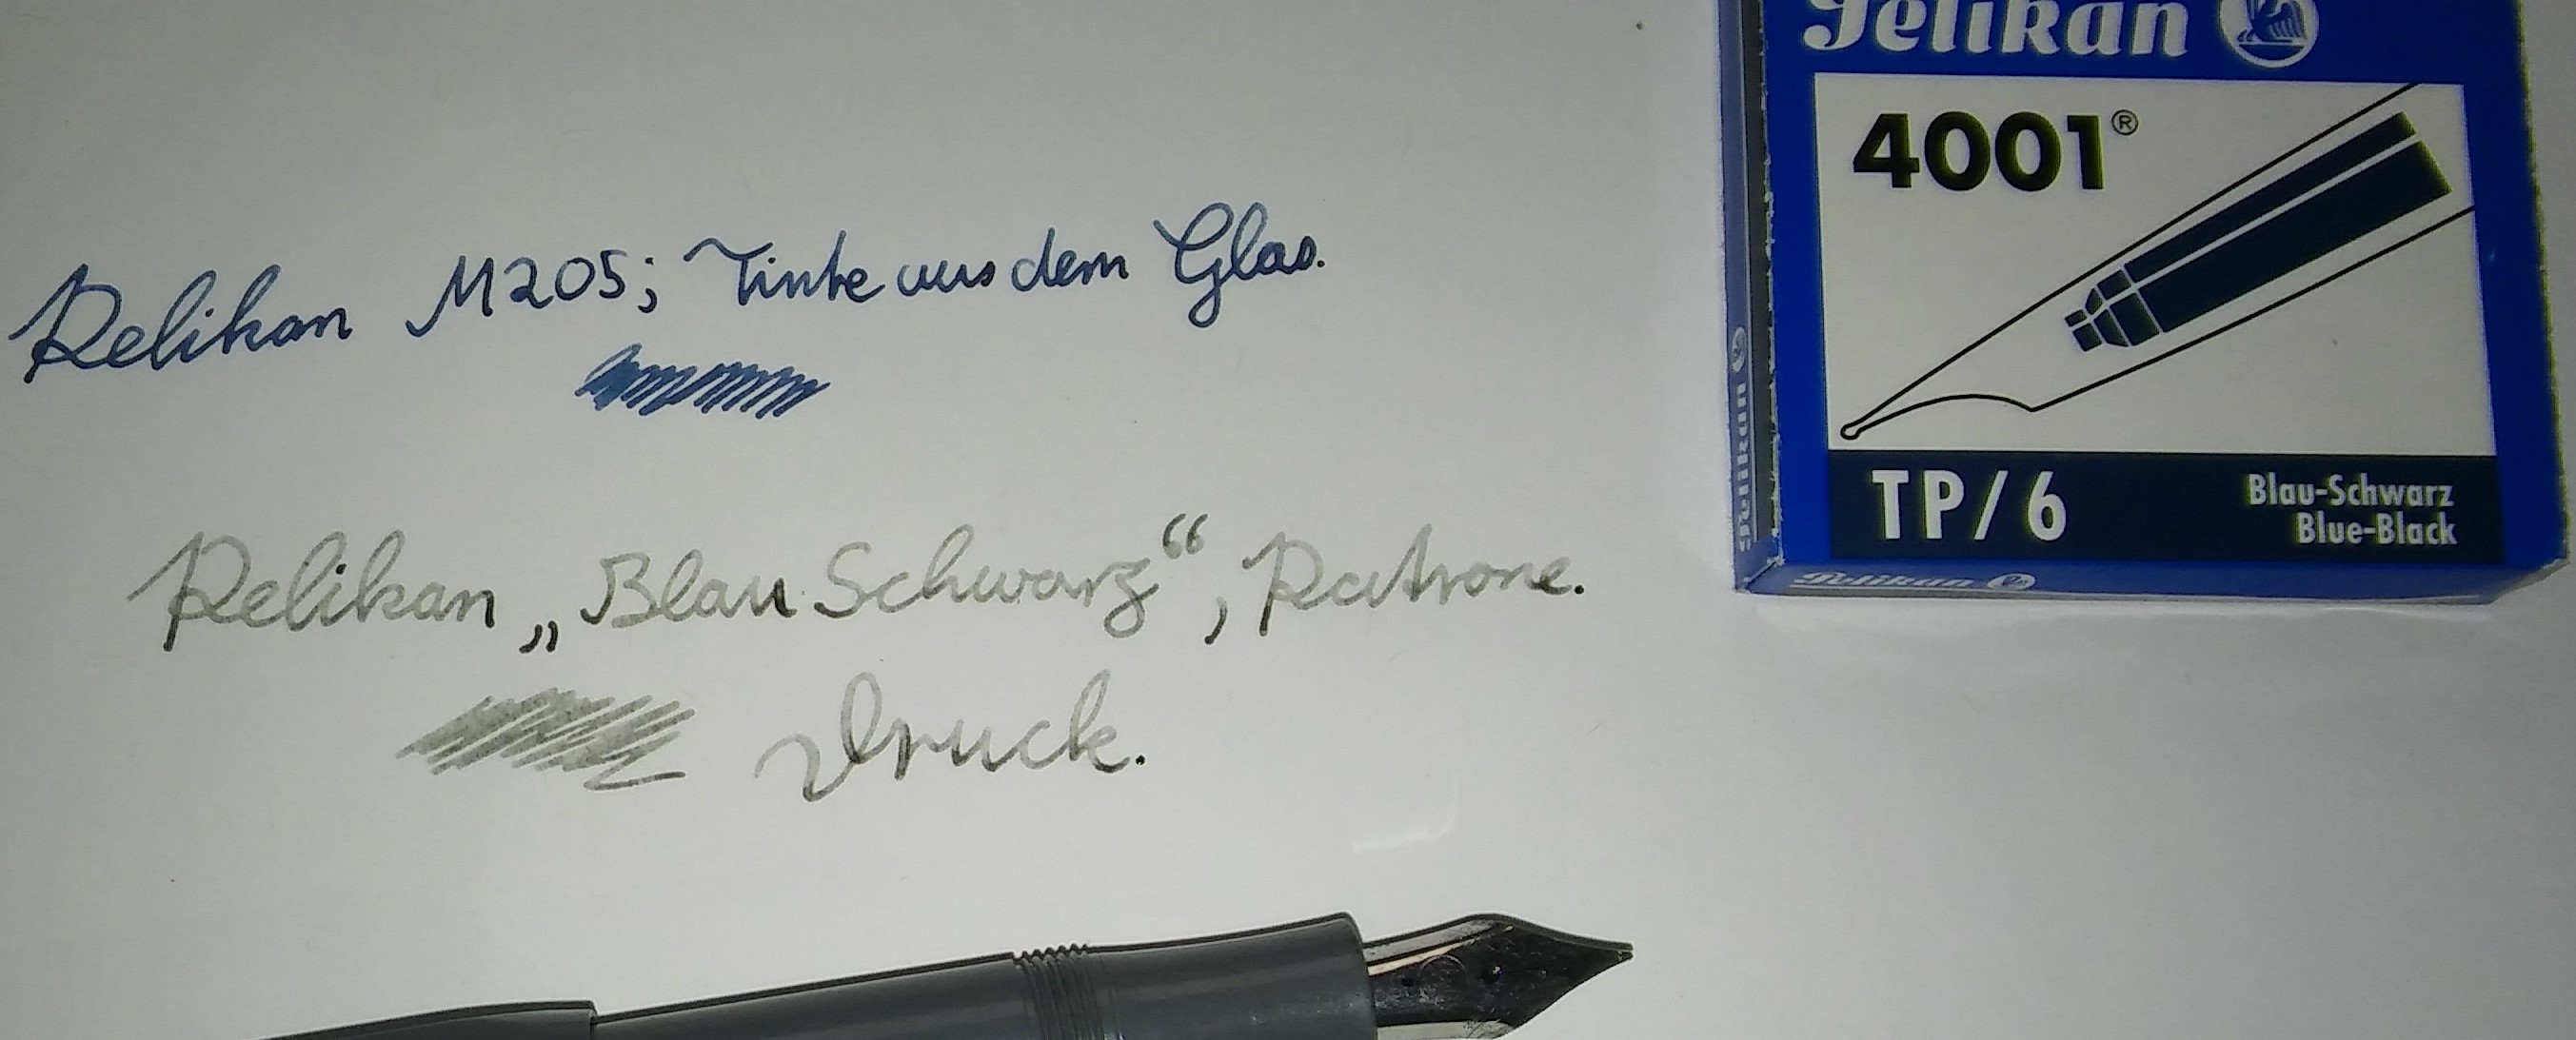 Pelikan M205; Tinte aus dem Glas.
Pelikan „Blau Schwarz“, Patrone.
Druck.
Pelikan
4001®
TP/6
Blau-Schwarz
Blue-Black
Pelikan
Pelikan